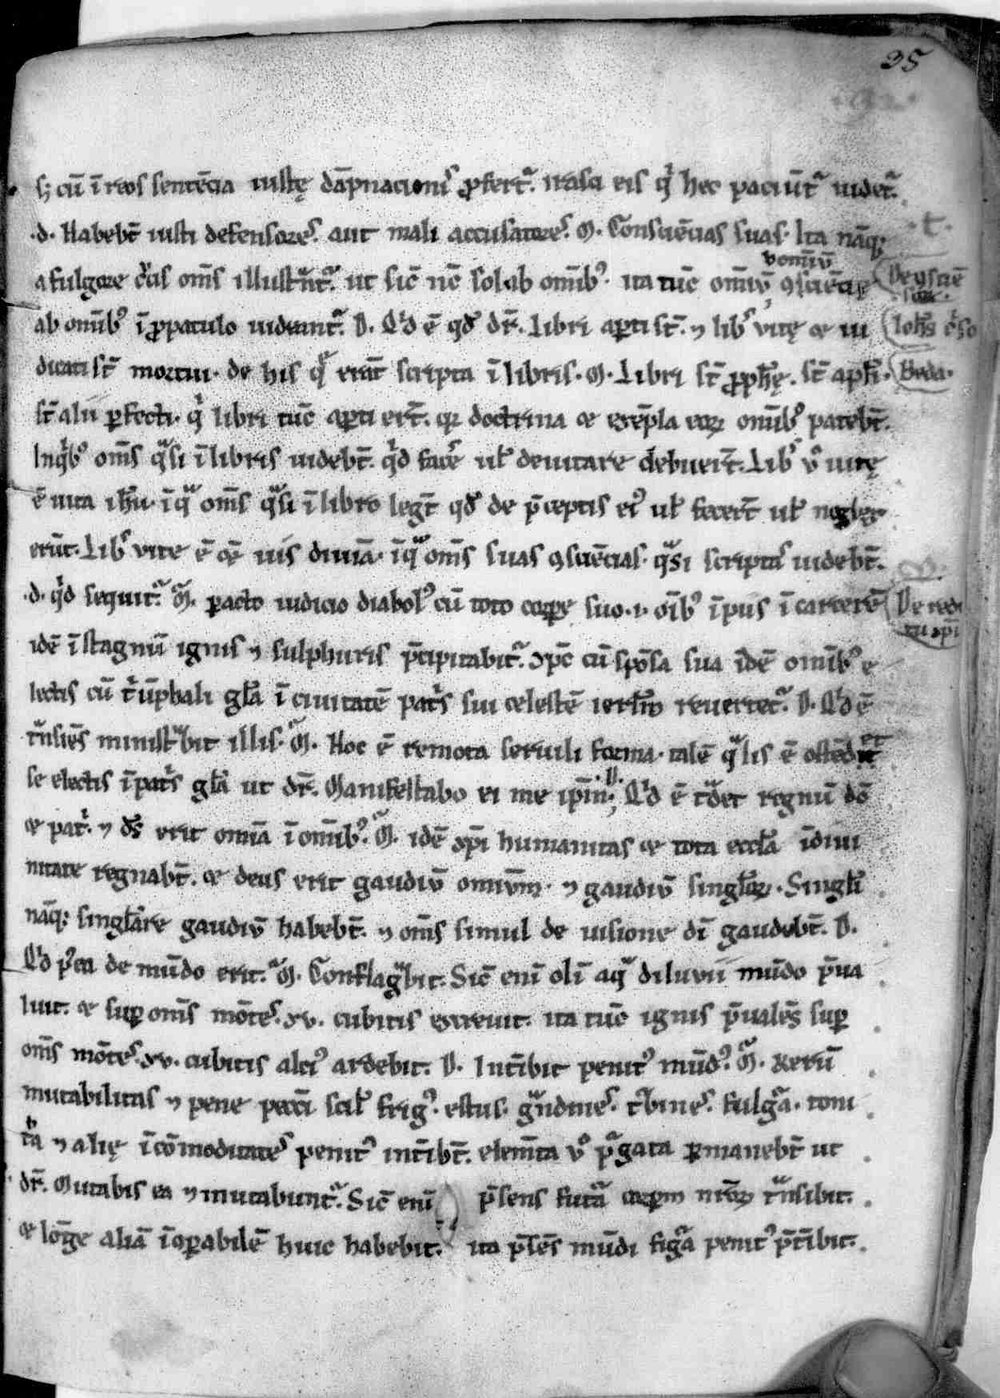 35
sʒ cū ī reos sentēcia iustę dāpnacionis ꝓfertᷣ. irasci eis qͥ hec paciūtᷣ uidetᷣ.
.d. Habebt̄ iusti defensores. aut mali accusatores. M. Consciēcias suas. Ita nāqꝫ
a fulgore cͥcis om̄s illustᷓntᷣ. ut sic̄ nc̄ sol ab om̄ibꝰ. ita tūc omiū ꝯsciēcię
ab om̄ibꝰ ī ꝓpatulo uidentᷣ. D. Qͥd ē qd̄ dr̄. Libri apti st̄. ⁊ libꝰ vitę et iu
dicati st̄ mortui. de his qᷓ erāt scripta ī libris. M. Libri st̄ ꝓph̄ę. st̄ apl̄i.
st̄ alii ꝑfecti. qͥ libri tūc apti er̄t. qꝛ doctrina et exēpla eoꝝ om̄ibꝰ patebt̄.
In qͥbꝰ om̄s qᷓsi ī libris uidebt̄. qͥd facē ul̄ deuitare debuer̄t. Libꝰ v̄ uitę
ē uita ih̄u. ī qᷓ om̄s qᷓsi ī libro legt̄ qd̄ de p̄ceptis eiꝰ ul̄ fecer̄t ul̄ neglex
erūt. Libꝰ vite ē et uis diuīa. ī qᷓ om̄s suas ꝯsciēcias. qᷓsi scriptas uidebt̄.
.d. qͥd sequitᷣ. M. ꝑacto iudicio diabolꝰ cū toto corpe suo. .i. oīb' īpiis ī carcerē
idē ī stagnū ignis ⁊ sulphuris p̄cipitabitᷣ. xp̄c cū spōsa sua idē omībꝰ e
lectis cū tͥūphali gl̄a ī ciuitatē patͥs sui celestē ierl̄m reuertetᷣ. D. Qͥd ē
tᷓnsiēs ministᷓbit illis. M. Hoc ē remota seruili forma. talē qᷓlis ē ostēdet
se electis ī patͥs gl̄a ut dr̄. Manifestabo ei me ip̄m. .D. Qͥd ē tᷓdet regnū dō
et patͥ. ⁊ ds̄ erit omīa ī omībꝰ. M. idē xp̄i humanitas et tota eccl̄a ī diui
nitate regnabt̄. et deus erit gaudiū omnium. ⁊ gaudiū singl̄oꝝ. Singl̄i
nāqꝫ singl̄are gaudiū habebt̄. ⁊ om̄s simul de uisione dī gaudebt̄. D.
Qͥd p̄ea de mūdo erit. M. Conflagᷓbit. Sic̄ enī olī aqᷓ diluuii mūdo p̄ua
luit. et suꝑ om̄s mōtes .xv. cubitis excreuit. ita tūc ignis p̄ualēs suꝑ
om̄s mōtes .xv. cubitis alciꝰ ardebit. D. Int̄ibit penitꝰ mūdꝰ. M. Rerū
mutabilitas ⁊ pene pecc̄i scil̄ frigꝰ. estus. gᷓndines. tᷣbines. fulgᷣa. toni
tͥa ⁊ alię īcōmoditates penitꝰ int̄ibt̄. elem̄ta v̊ pᷣgata ꝑmanebt̄ ut
dr̄. Mutabis ea ⁊ mutabuntᷣ. Sic̄ enī p̄sens figᷣa corpm nr̄oꝝ tᷓnsibit.
et lōge aliā īcōparabilē huic habebit. ita p̄sēs mūdi figᷣa penitꝰ p̄t̄ibit.
De ꝯsciē
Ioh̄s
Beda.
De redi
tu xp̄i